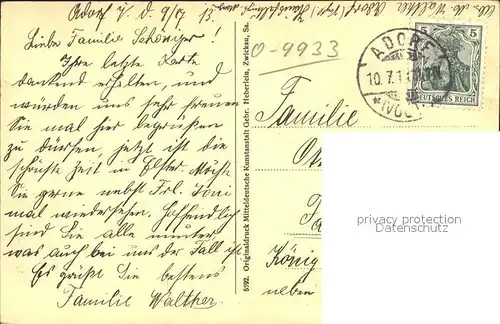 Adorf i/V. d. 9/VII 13.
Liebe Familie Schöniger!
Ihre letzte Karte
dankend erhalten, und
würden uns sehr freuen
Sie mal hier begrüßen
zu dürfen, jetzt ist die
schönste Zeit in Elster. Möcht
Sie gerne nebst Frl. Toni
mal wiedersehen. Hoffentlich
sind Sie alle munter,
was auch bei uns der Fall ist.
Es grüßt Sie bestens
Familie Walther.
5192. Originaldruck Mitteldeutsche Kunstanstalt Gebr. Heberlein, Zwickau, Sa.
Walther Adorf (Vogtl)
O-9933
ADORF
10.7.1
(VOGTL
5
DEUTSCHES REICH
Familie
König
neben
privacy protection
watermark